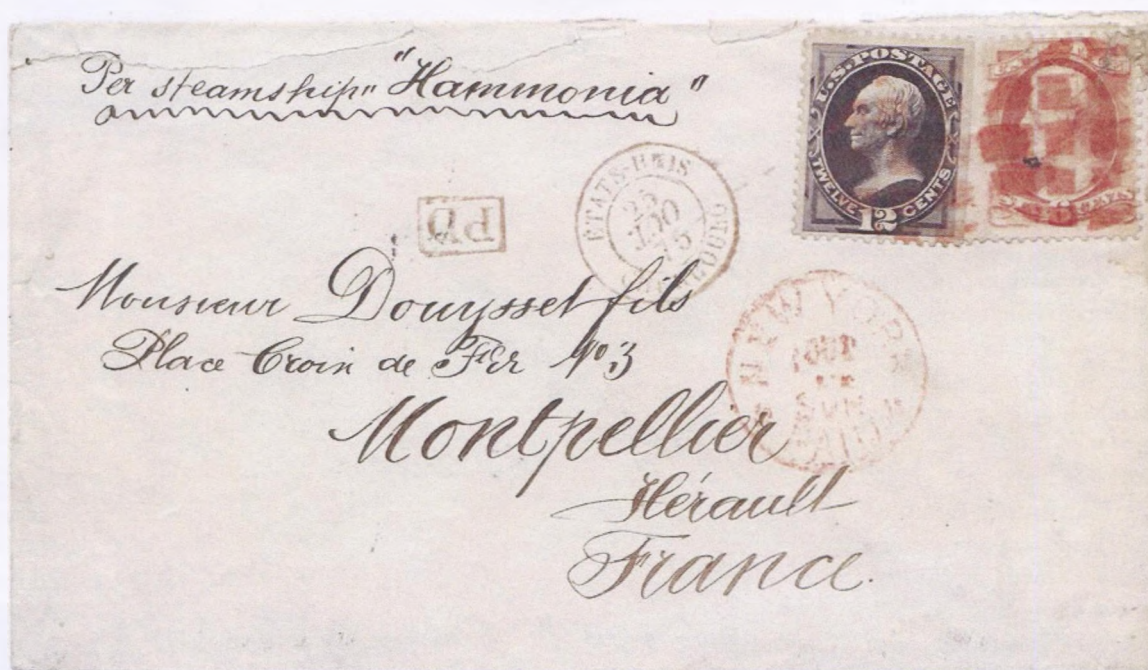 Per steamship "Hammonia"
U.S. POSTAGE
TWELVE 12 CENTS
ETATS-UNIS
25
CHERBOURG
PD
NEW YORK
Monsieur Douysset fils
Place Croix de Fer No 3
Montpellier
Hérault
France.